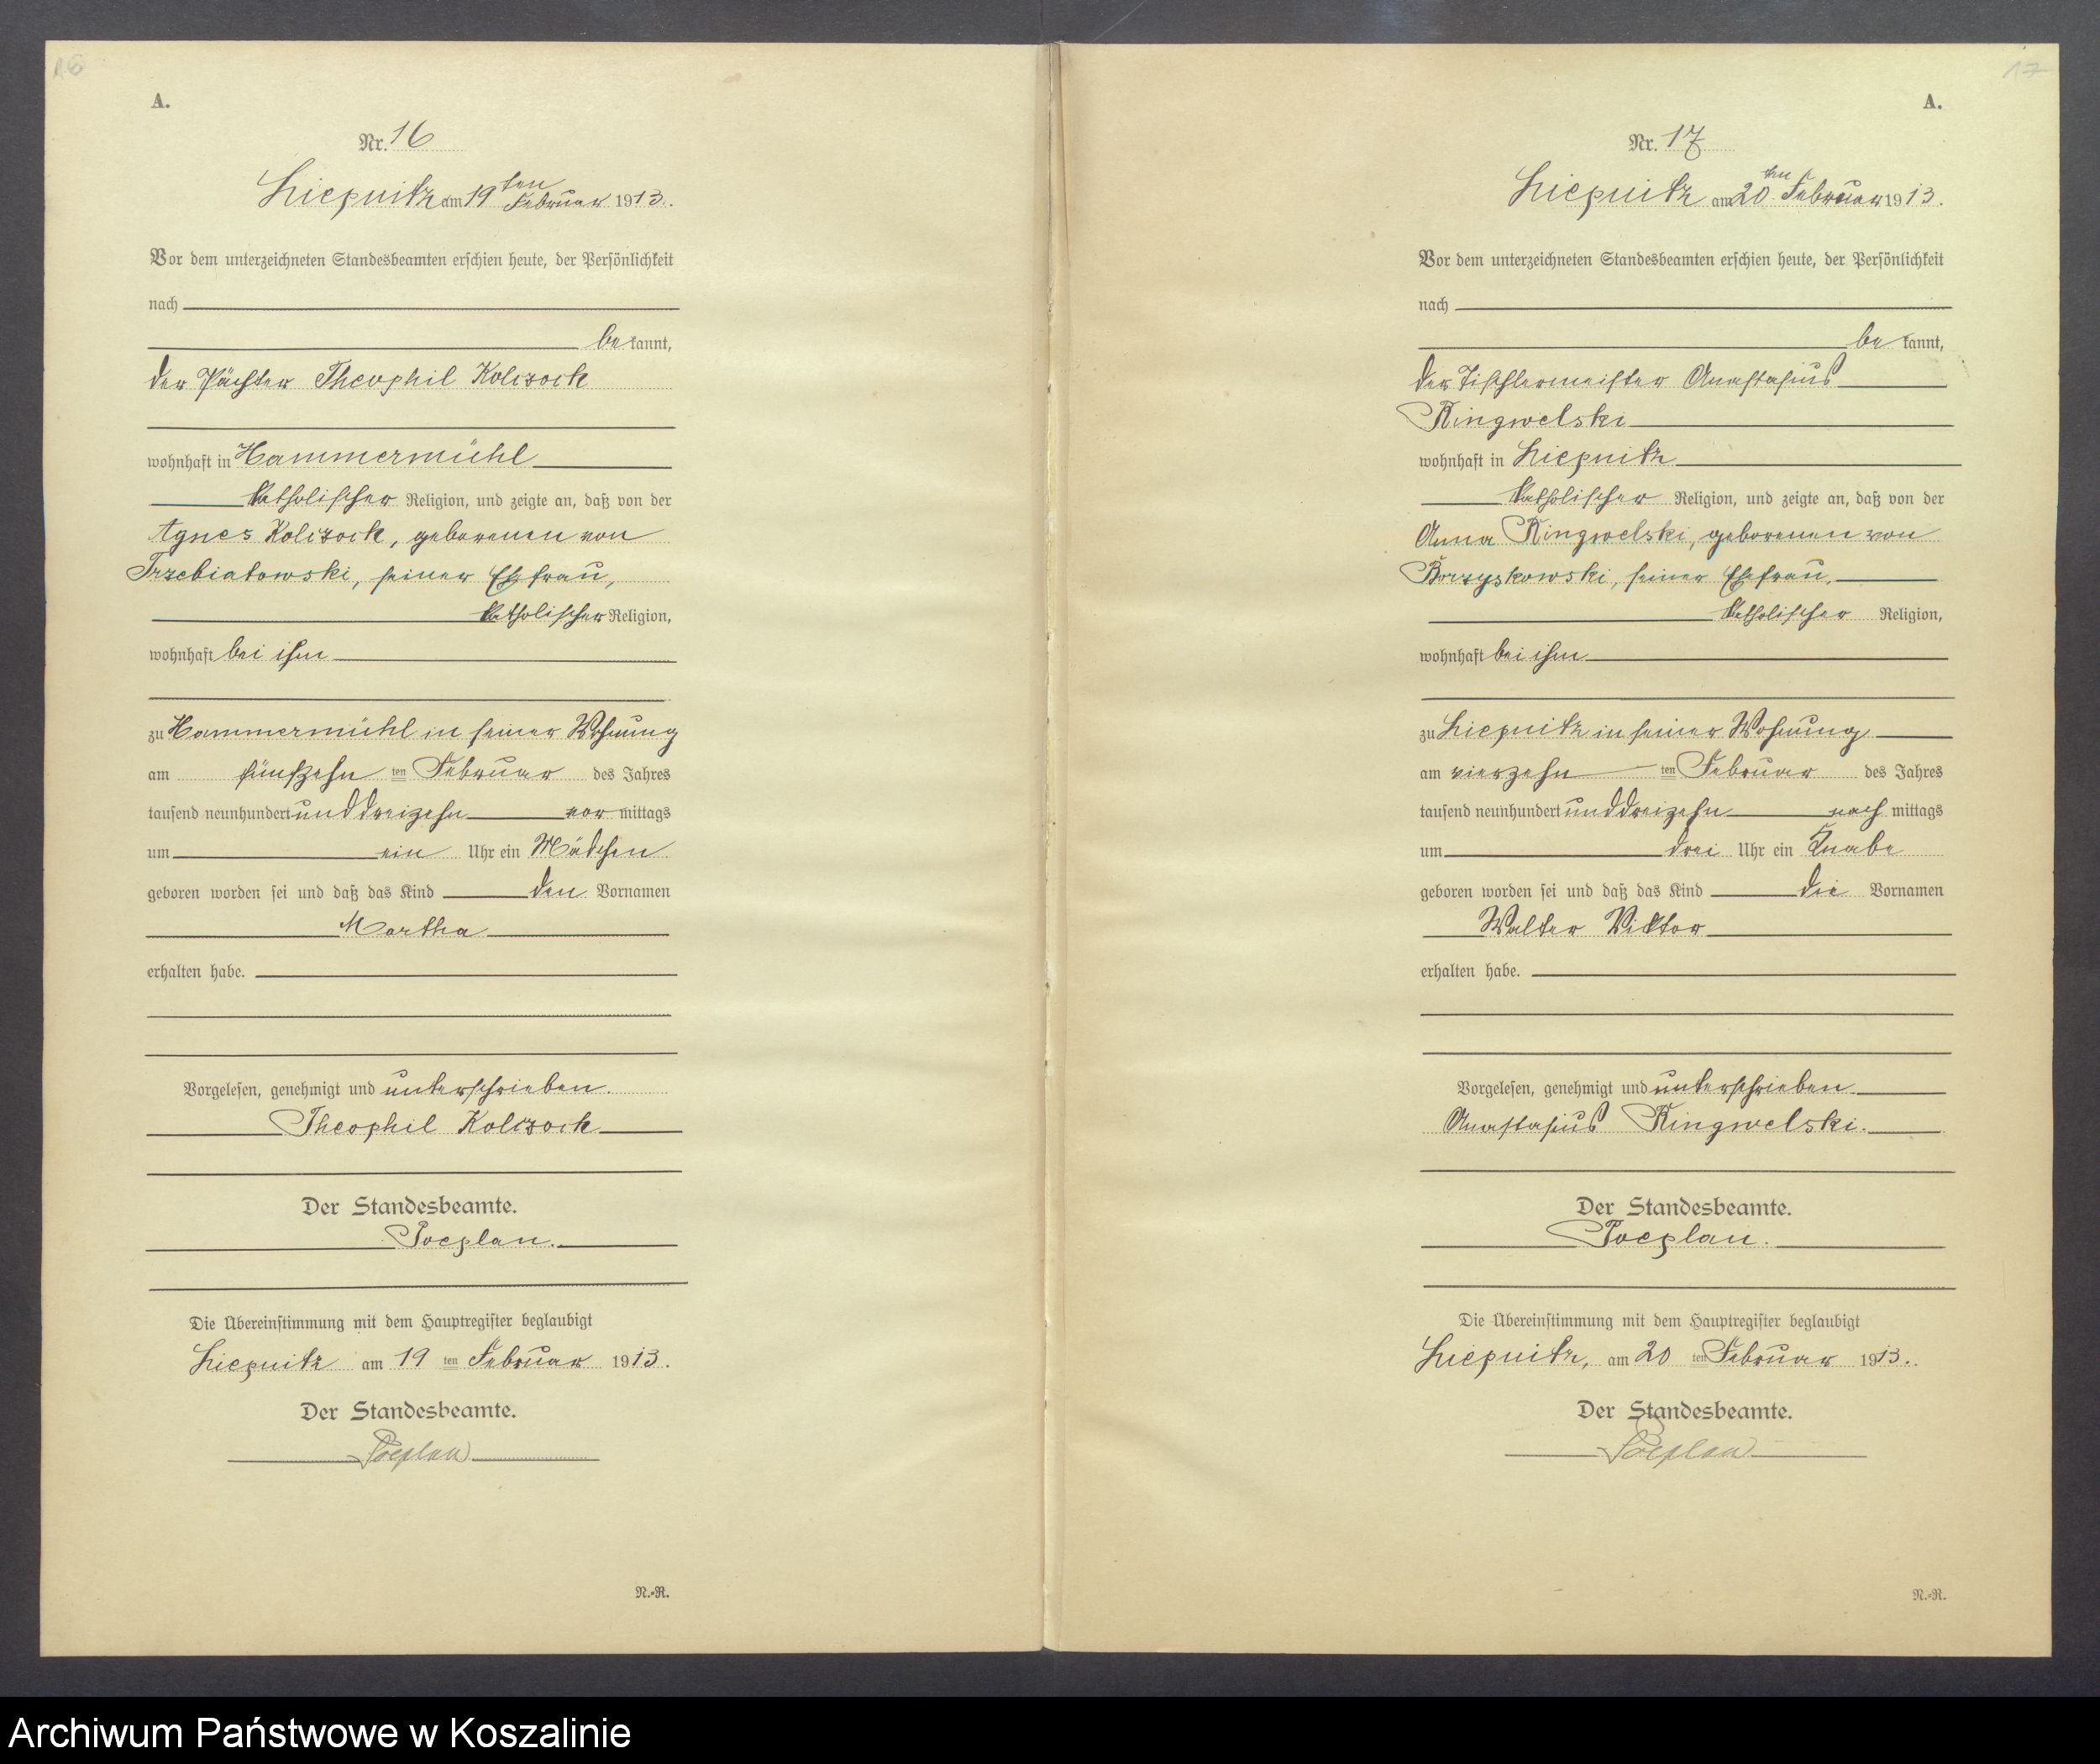 16
A.
Nr. 16
Liepnitz am 19ten Februar 1913.
Vor dem unterzeichneten Standesbeamten erschien heute, der Persönlichkeit
nach
be kannt,
der Pächter Theophil Kolczock
wohnhaft in Hammermühl
katholischer Religion, und zeigte an, daß von der
Agnes Kolczock, geborenen von
Trzebiatowski, seiner Ehefrau,
katholischer Religion,
wohnhaft bei ihm
zu Hammermühl in seiner Wohnung
am fünfzehn ten Februar des Jahres
tausend neunhundert unddreizehn vor mittags
um ein Uhr ein Mädchen
geboren worden sei und daß das Kind den Vornamen
Martha
erhalten habe.
Vorgelesen, genehmigt und unterschrieben.
Theophil Kolczock
Der Standesbeamte.
Poeplau.
Die Übereinstimmung mit dem Hauptregister beglaubigt
Liepnitz am 19 ten Februar 1913.
Der Standesbeamte.
Poeplau
N.-R.
17
A.
Nr. 17
Liepnitz am 20ten Februar 1913.
Vor dem unterzeichneten Standesbeamten erschien heute, der Persönlichkeit
nach
be kannt,
der Tischlermeister Anastasius
Ringwelski
wohnhaft in Liepnitz
katholischer Religion, und zeigte an, daß von der
Anna Ringwelski, geborenen von
Borzyskowski, seiner Ehefrau,
katholischer Religion,
wohnhaft bei ihm
zu Liepnitz in seiner Wohnung
am vierzehn ten Februar des Jahres
tausend neunhundert unddreizehn nach mittags
um drei Uhr ein Knabe
geboren worden sei und daß das Kind die Vornamen
Walter Viktor
erhalten habe.
Vorgelesen, genehmigt und unterschrieben.
Anastasius Ringwelski.
Der Standesbeamte.
Poeplau.
Die Übereinstimmung mit dem Hauptregister beglaubigt
Liepnitz, am 20 ten Februar 1913.
Der Standesbeamte.
Poeplau
N.-R.
Archiwum Państwowe w Koszalinie